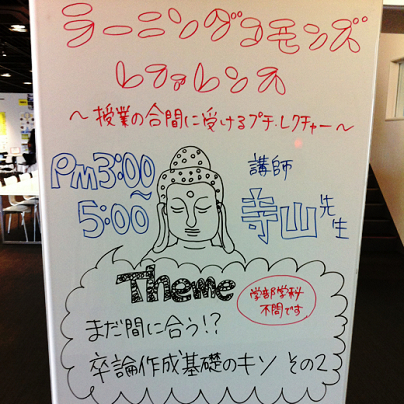 ラーニングコモンズ
レファレンス
～授業の合間に受けるプチ・レクチャー～
PM3:00
～
5:00
講師
寺山先生
Theme
学部学科
不問です
まだ間に合う!?
卒論作成基礎のキソ その2